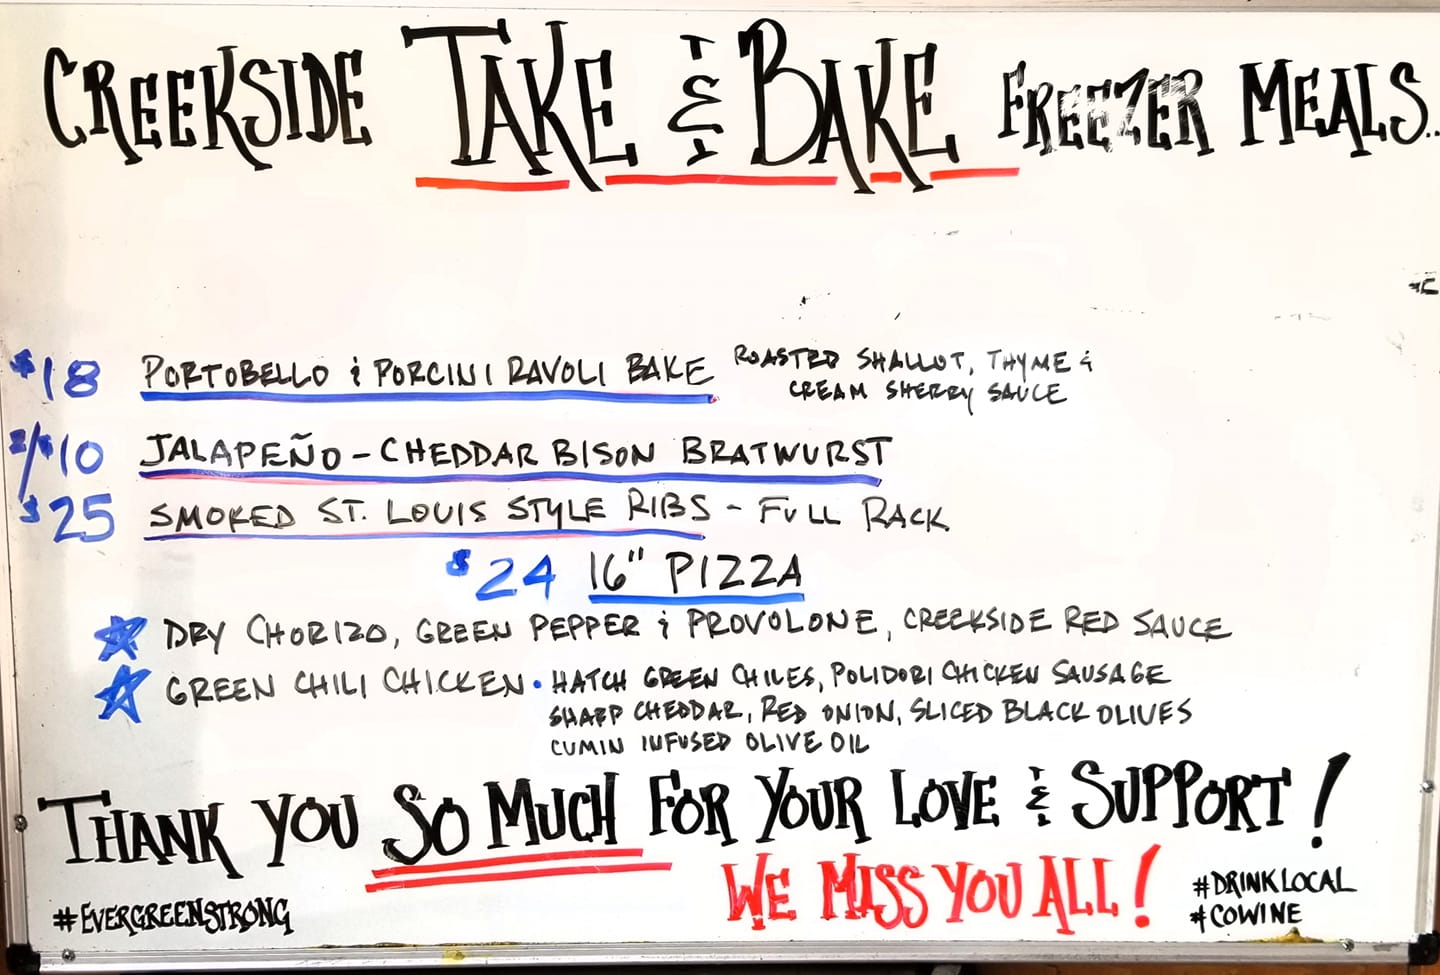 CREEKSIDE TAKE & BAKE FREEZER MEALS..
$18 PORTOBELLO & PORCINI RAVOLI BAKE ROASTED SHALLOT, THYME &
CREAM SHERRY SAUCE
2/$10 JALAPEÑO - CHEDDAR BISON BRATWURST
$25 SMOKED ST. LOUIS STYLE RIBS - FULL RACK
$24 16" PIZZA
DRY CHORIZO, GREEN PEPPER & PROVOLONE, CREEKSIDE RED SAUCE
GREEN CHILI CHICKEN • HATCH GREEN CHILES, POLIDORI CHICKEN SAUSAGE
SHARP CHEDDAR, RED ONION, SLICED BLACK OLIVES
CUMIN INFUSED OLIVE OIL
THANK YOU SO MUCH FOR YOUR LOVE & SUPPORT!
WE MISS YOU ALL!
#EVERGREENSTRONG
#DRINKLOCAL
#COWINE